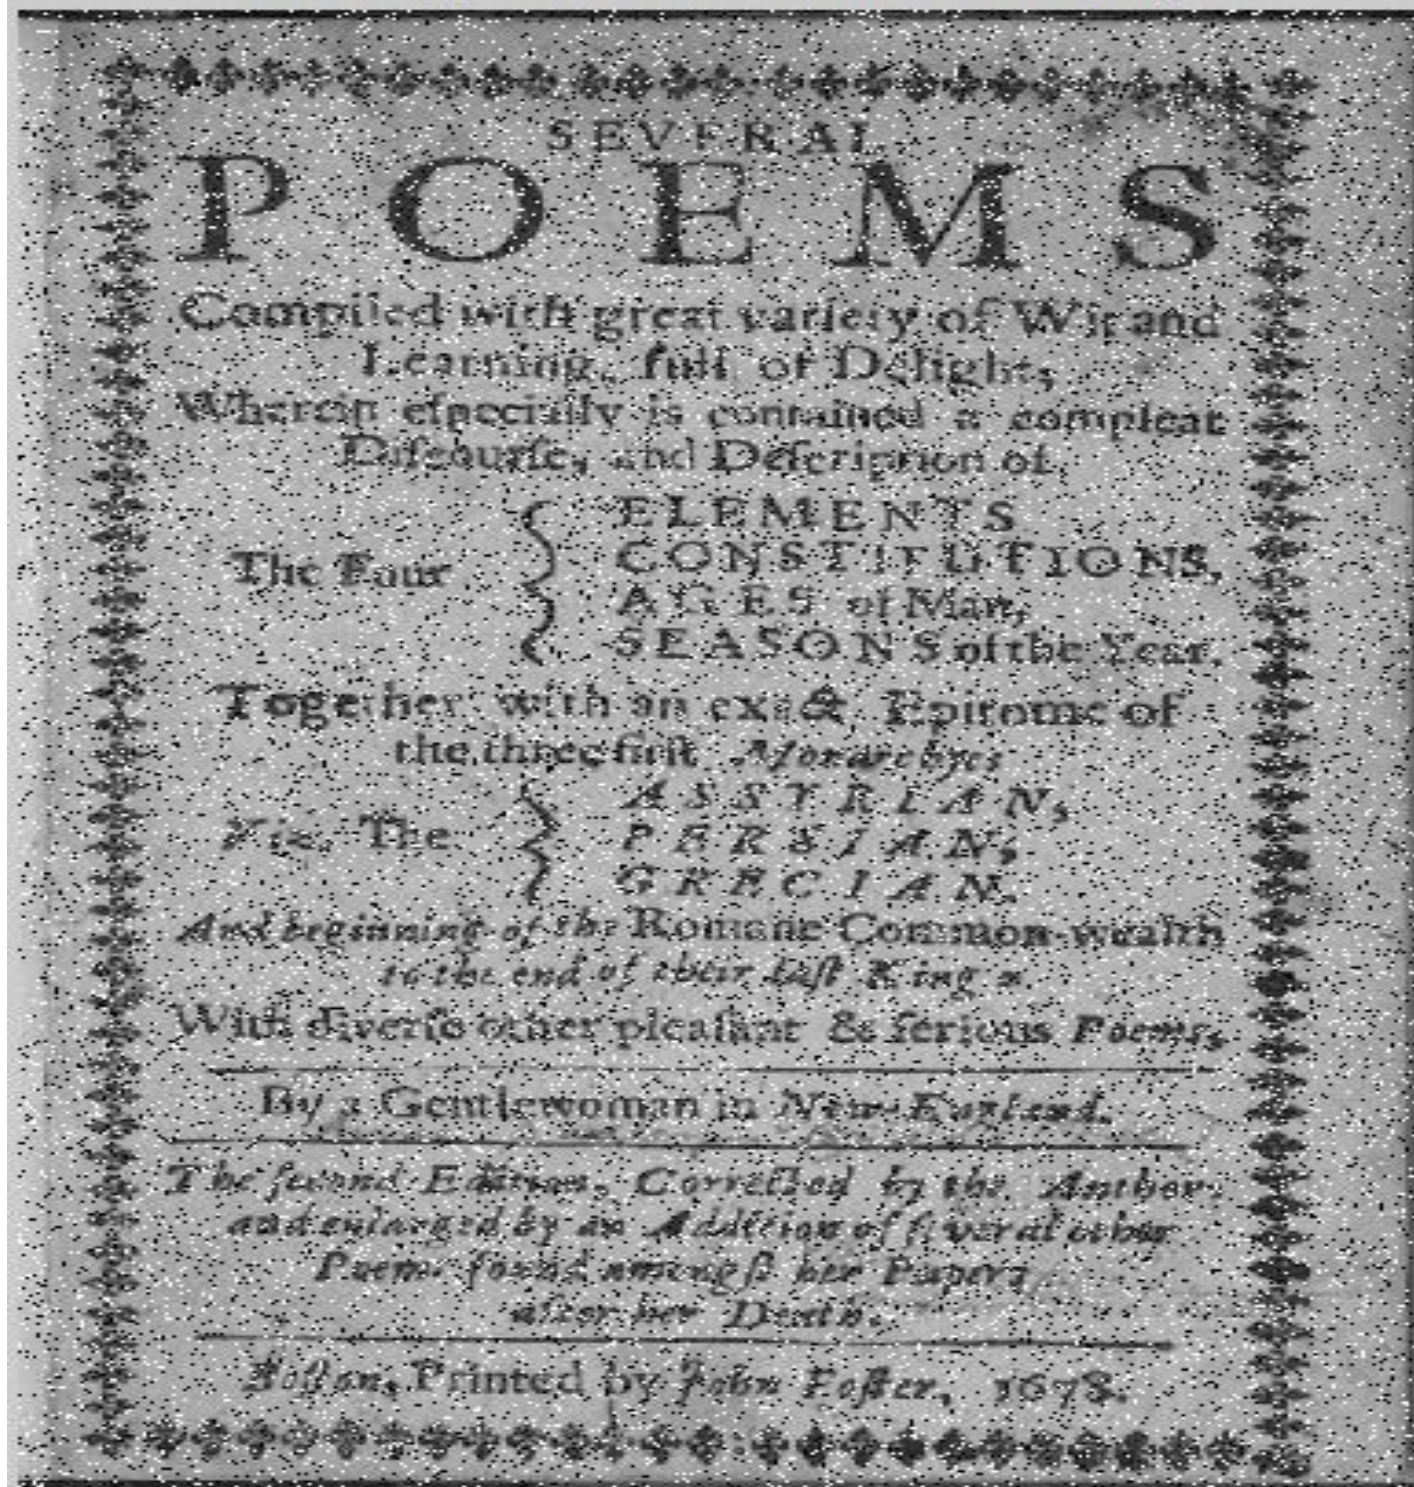 SEVERAL
POEMS
Compiled with great variety of Wit and
Learning, full of Delight,
Wherein eſpecially is contained a compleat
Diſcourſe, and Deſcription of,
The Four
ELEMENTS
CONSTITUTIONS,
AGES of Man,
SEASONS of the Year.
Together with an exact Epitome of
the three firſt Monarchyes
Viz. The
ASSYRIAN,
PERSIAN,
GRECIAN.
And beginning of the Romane Common-wealth
to the end of their laſt King:
With diverſe other pleaſant & ſerious Poems,
By a Gentlewoman in New-England.
The ſecond Edition, Corrected by the Author,
and enlarged by an Addition of ſeveral other
Poems found amongſt her Papers
after her Death.
Boſton, Printed by John Foſter, 1678.